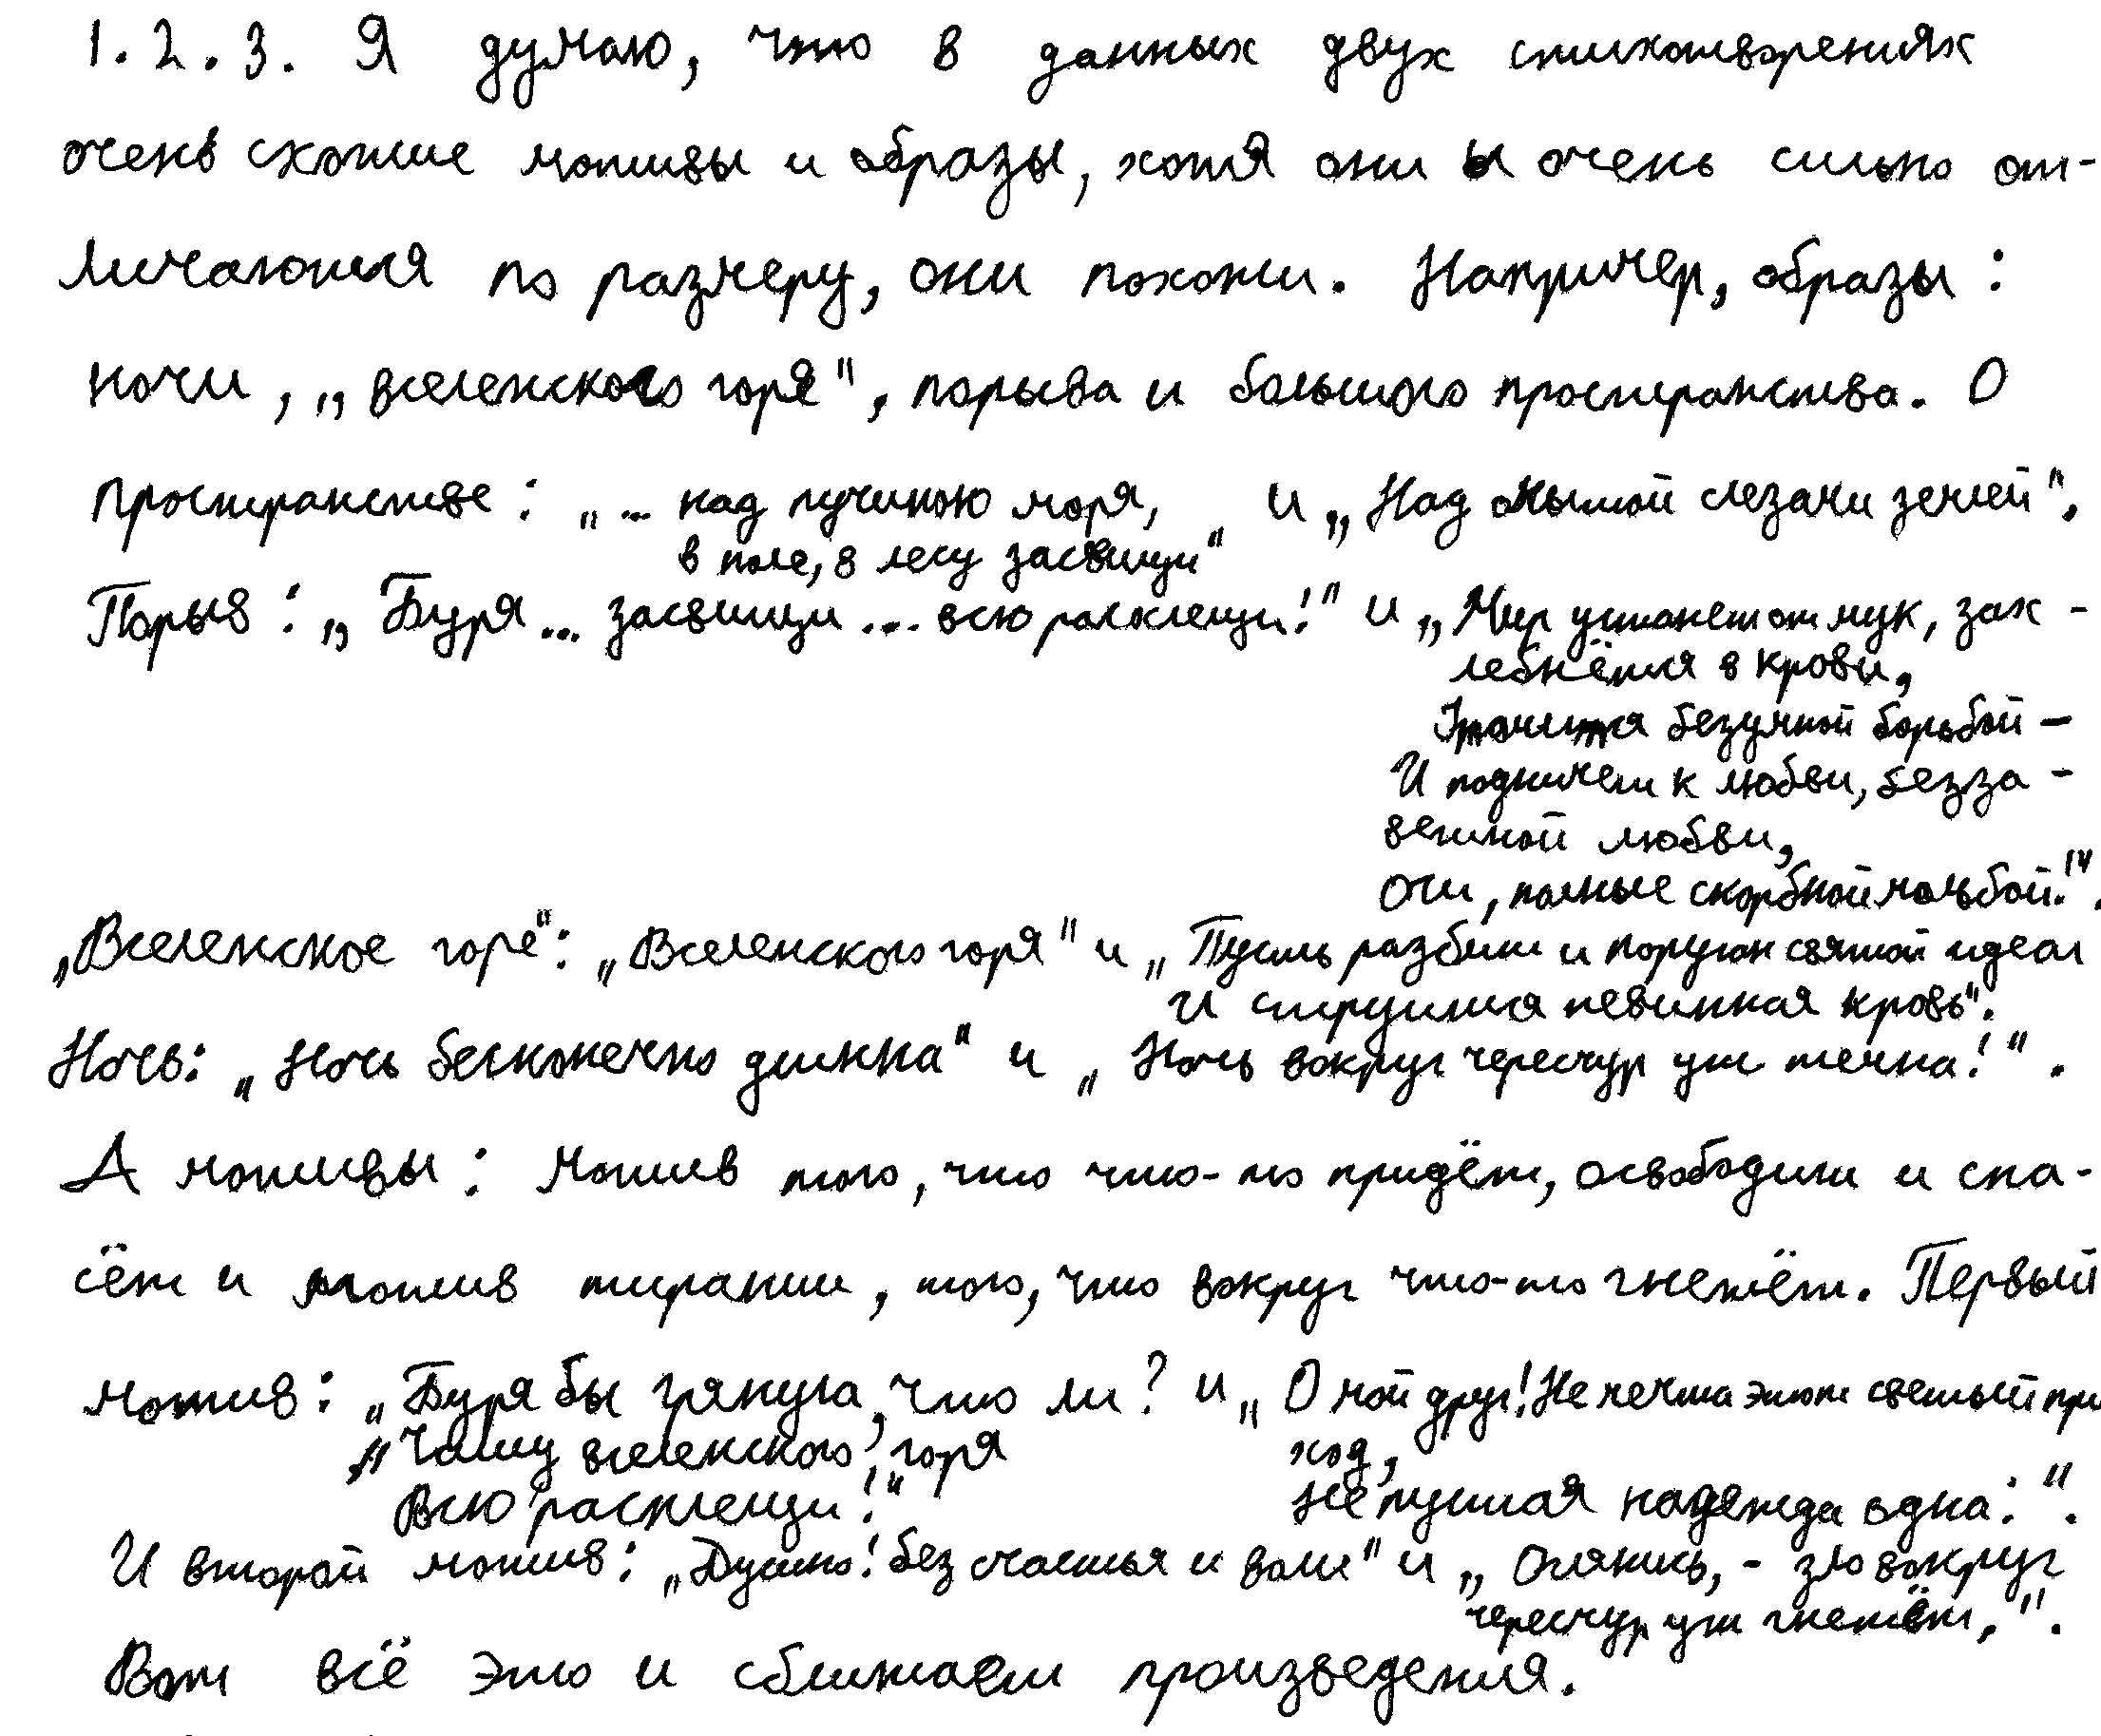 1.2.3. Я думаю, что в данных двух стихотворениях
очень схожие мотивы и образы, хотя они и очень сильно от-
личаются по размеру, они похожи. Например, образы:
ночи, „вселенского горя", порыва и большого пространства. О
пространстве: „... над пучиною моря, и „Над омытой слезами землей".
в поле, в лесу засвищи"
Порыв: „Буря... засвищи... всю расплещи!" и „Мир устанет от мук, зах-
лебнётся в крови,
Утомится безумной борьбой –
И поднимет к любви, безза-
ветной любви,
Очи, полные скорбной мольбой!".
„Вселенское горе": „Вселенского горя" и „Пусть разбит и поруган святой идеал
И струится невинная кровь".
Ночь: „Ночь бесконечно длинна" и „Ночь вокруг чересчур уж темна!".
А мотивы: мотив того, что что-то придёт, освободит и спа-
сёт и мотив тирании, того, что вокруг что-то гнетёт. Первый
мотив: „Буря бы грянула, что ли? и „О мой друг! Не мечта этот светлый при
„Чашу вселенского горя ход,
Всю расплещи!" Не пустая надежда одна:".
И второй мотив: „Душно! без счастья и воли" и „Оглянись, - зло вокруг
чересчур уж гнетёт,".
Вот всё это и сближает произведения.